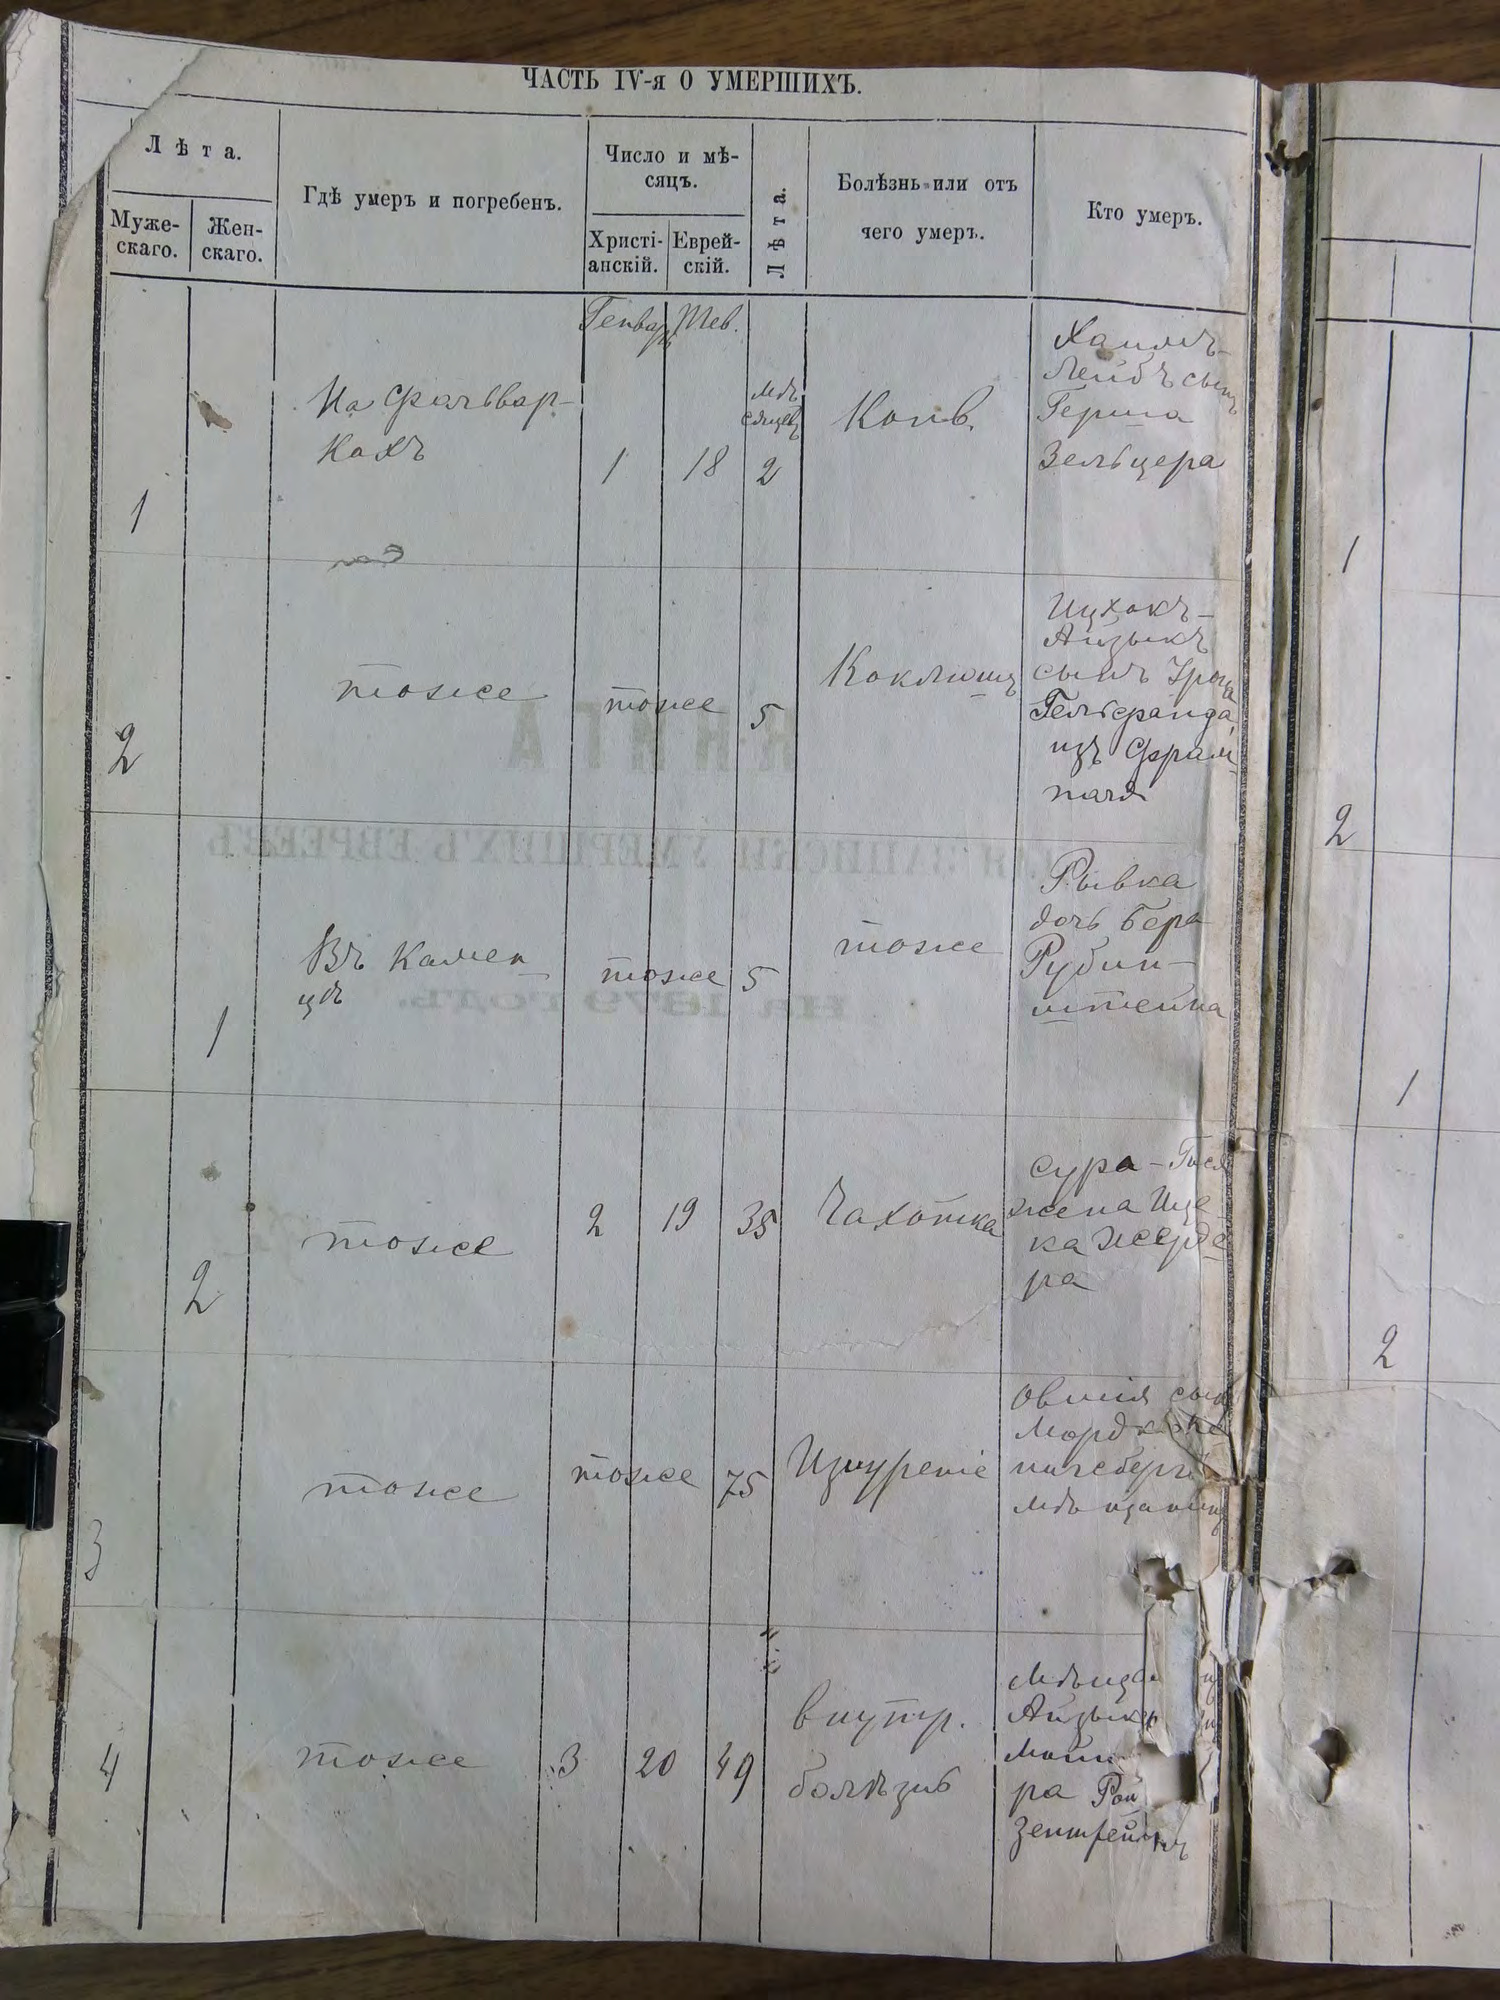 ЧАСТЬ IV-я О УМЕРШИХЪ.
Лѣта.
Муже-
скаго.
Жен-
скаго.
Гдѣ умеръ и погребенъ.
Число и мѣ-
сяцъ.
Христі-
анскій.
Еврей-
скій.
Лѣта.
Болѣзнь или отъ
чего умеръ.
Кто умеръ.
Генварь
Тев.
1
На Фольвар-
кахъ
1
18
мѣ-
сяцевъ
2
Конв.
Хаимъ-
Лейбъ сынъ
Герша
Зельцера
2
тоже
тоже
5
Коклюшъ
Ицхокъ-
Айзыкъ
сынъ
Гельфанда
изъ Фрам-
поля
1
Въ Камен-
цѣ
тоже
5
тоже
Рывка
дочь Бера
Рубин-
штейна
2
тоже
2
19
35
Чахотка
Сура-Гися
жена Ице-
ка
ра
3
тоже
тоже
75
Изнуреніе
Овшія сынъ
Мордка
мѣщанинъ
4
тоже
3
20
49
внутр.
болѣзнь
Айзыкъ
ра Рой
КНИГА
ДЛЯ ЗАПИСКИ УМЕРШИХЪ ЕВРЕЕВЪ
НА 1879 ГОДЪ.
1
2
1
2